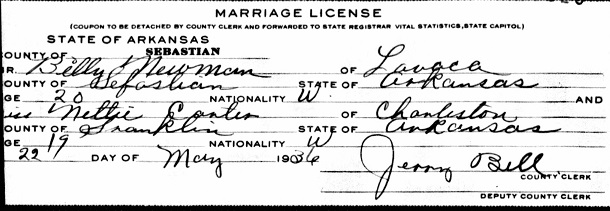 MARRIAGE LICENSE
(COUPON TO BE DETACHED BY COUNTY CLERK AND FORWARDED TO STATE REGISTRAR VITAL STATISTICS, STATE CAPITOL)
STATE OF ARKANSAS
COUNTY OF SEBASTIAN
MR. Billy Newman OF Lavaca
COUNTY OF Sebastian STATE OF Arkansas
AGE 20 NATIONALITY W AND
Miss Nettie Carter OF Charleston
COUNTY OF Franklin STATE OF Arkansas
AGE 19 NATIONALITY W
22 DAY OF May 1936 Jerry Bell
COUNTY CLERK
DEPUTY COUNTY CLERK